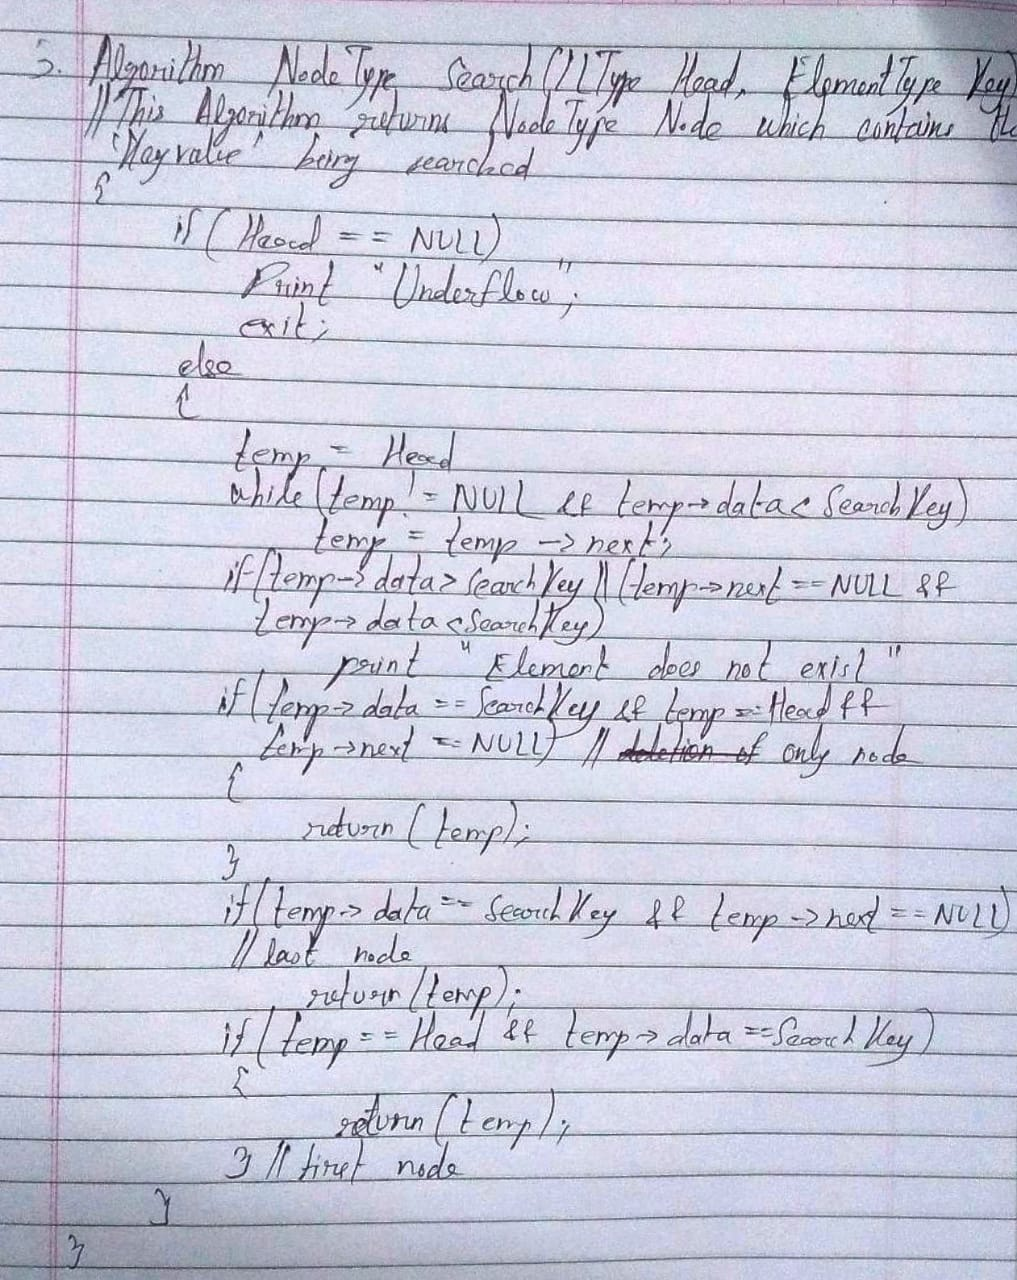 5. Algorithm NodeType Search(LLType Head, ElementType Key)
// This Algorithm returns NodeType Node which contains the
'Key value' being searched
{
if (Head == NULL)
Print "Underflow";
exit;
else
{
temp = Head
while (temp != NULL && temp→data < SearchKey)
temp = temp -> next;
if (temp-> data > SearchKey || (temp→next == NULL &&
temp→ data < SearchKey)
print "Element does not exist"
if (temp-> data == SearchKey && temp == Head &&
temp→next == NULL) // deletion of only node
{
return (temp);
}
if (temp-> data == SearchKey && temp ->next == NULL)
// last node
return (temp);
if (temp == Head && temp→ data == Search Key)
{
return (temp);
} // first node
}
}